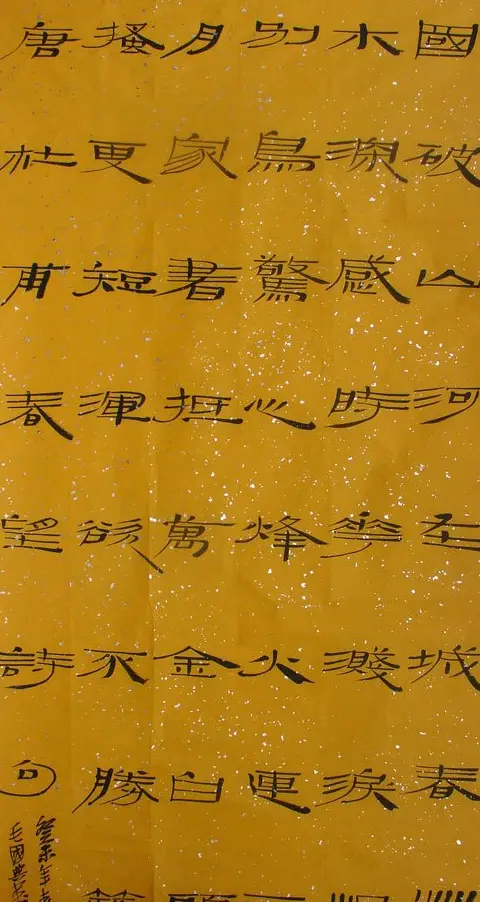 國破山河在城春
木深感時花濺淚
別鳥驚心烽火連
月家書抵萬金白
搔更短渾欲不勝
唐杜甫春望詩句
癸未年
王國